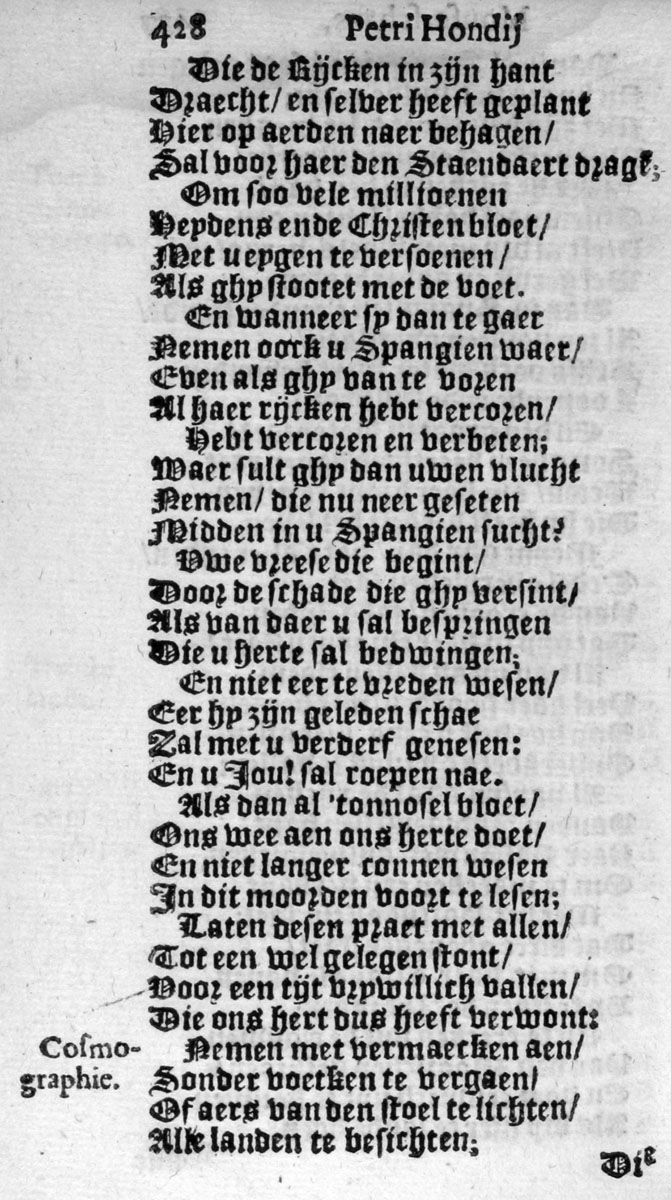 428 Petri Hondij
Die de Rijcken in zijn hant
Draecht/ en selver heeft geplant
Hier op aerden naer behagen/
Sal voor haer den Staendaert dragē;
Om soo vele millioenen
Heydens ende Christen bloet/
Met u eygen te versoenen/
Als ghy stootet met de voet.
En wanneer sy dan te gaer
Nemen oock u Spangien waer/
Even als ghy van te voren
Al haer rijcken hebt vercoren/
Hebt vercoren en verbeten;
Waer sult ghy dan uwen vlucht
Nemen/ die nu neer geseten
Midden in u Spangien sucht?
Uwe vreese die begint/
Door de schade die ghy versint/
Als van daer u sal bespringen
Die u herte sal bedwingen;
En niet eer te vreden wesen/
Eer hy zijn geleden schae
Zal met u verderf genesen:
En u Jou! sal roepen nae.
Als dan al 'tonnosel bloet/
Ons wee aen ons herte doet/
En niet langer connen wesen
In dit moorden voort te lesen;
Laten desen praet met allen/
Tot een wel gelegen stont/
Voor een tijt vrywillich vallen/
Die ons hert dus heeft verwont:
Cosmo-
graphie.
Nemen met vermaecken aen/
Sonder voetken te vergaen/
Of aers van den stoel te lichten/
Alle landen te besichten;
Die